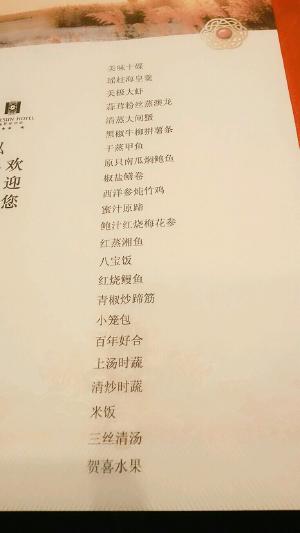 美味十碟
瑶柱海皇羹
美极大虾
蒜茸粉丝蒸澳龙
清蒸大闸蟹
黑椒牛柳拼薯条
干蒸甲鱼
原只南瓜焖鲍鱼
椒盐鳝卷
西洋参炖竹鸡
蜜汁原蹄
鲍汁红烧梅花参
红蒸湘鱼
八宝饭
红烧鳗鱼
青椒炒蹄筋
小笼包
百年好合
上汤时蔬
清炒时蔬
米饭
三丝清汤
贺喜水果
HOTEL
欢
迎
您